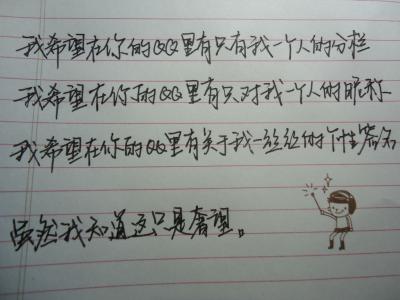 我希望在你的QQ里有只有我一个人的分栏
我希望在你的QQ里有只对我一个人的昵称
我希望在你的QQ里有关于我一丝丝的个性签名
虽然我知道这只是奢望。